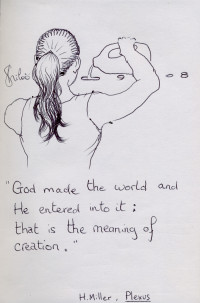 "God made the world and
He entered into it;
that is the meaning of
creation."
H.Miller, Plexus